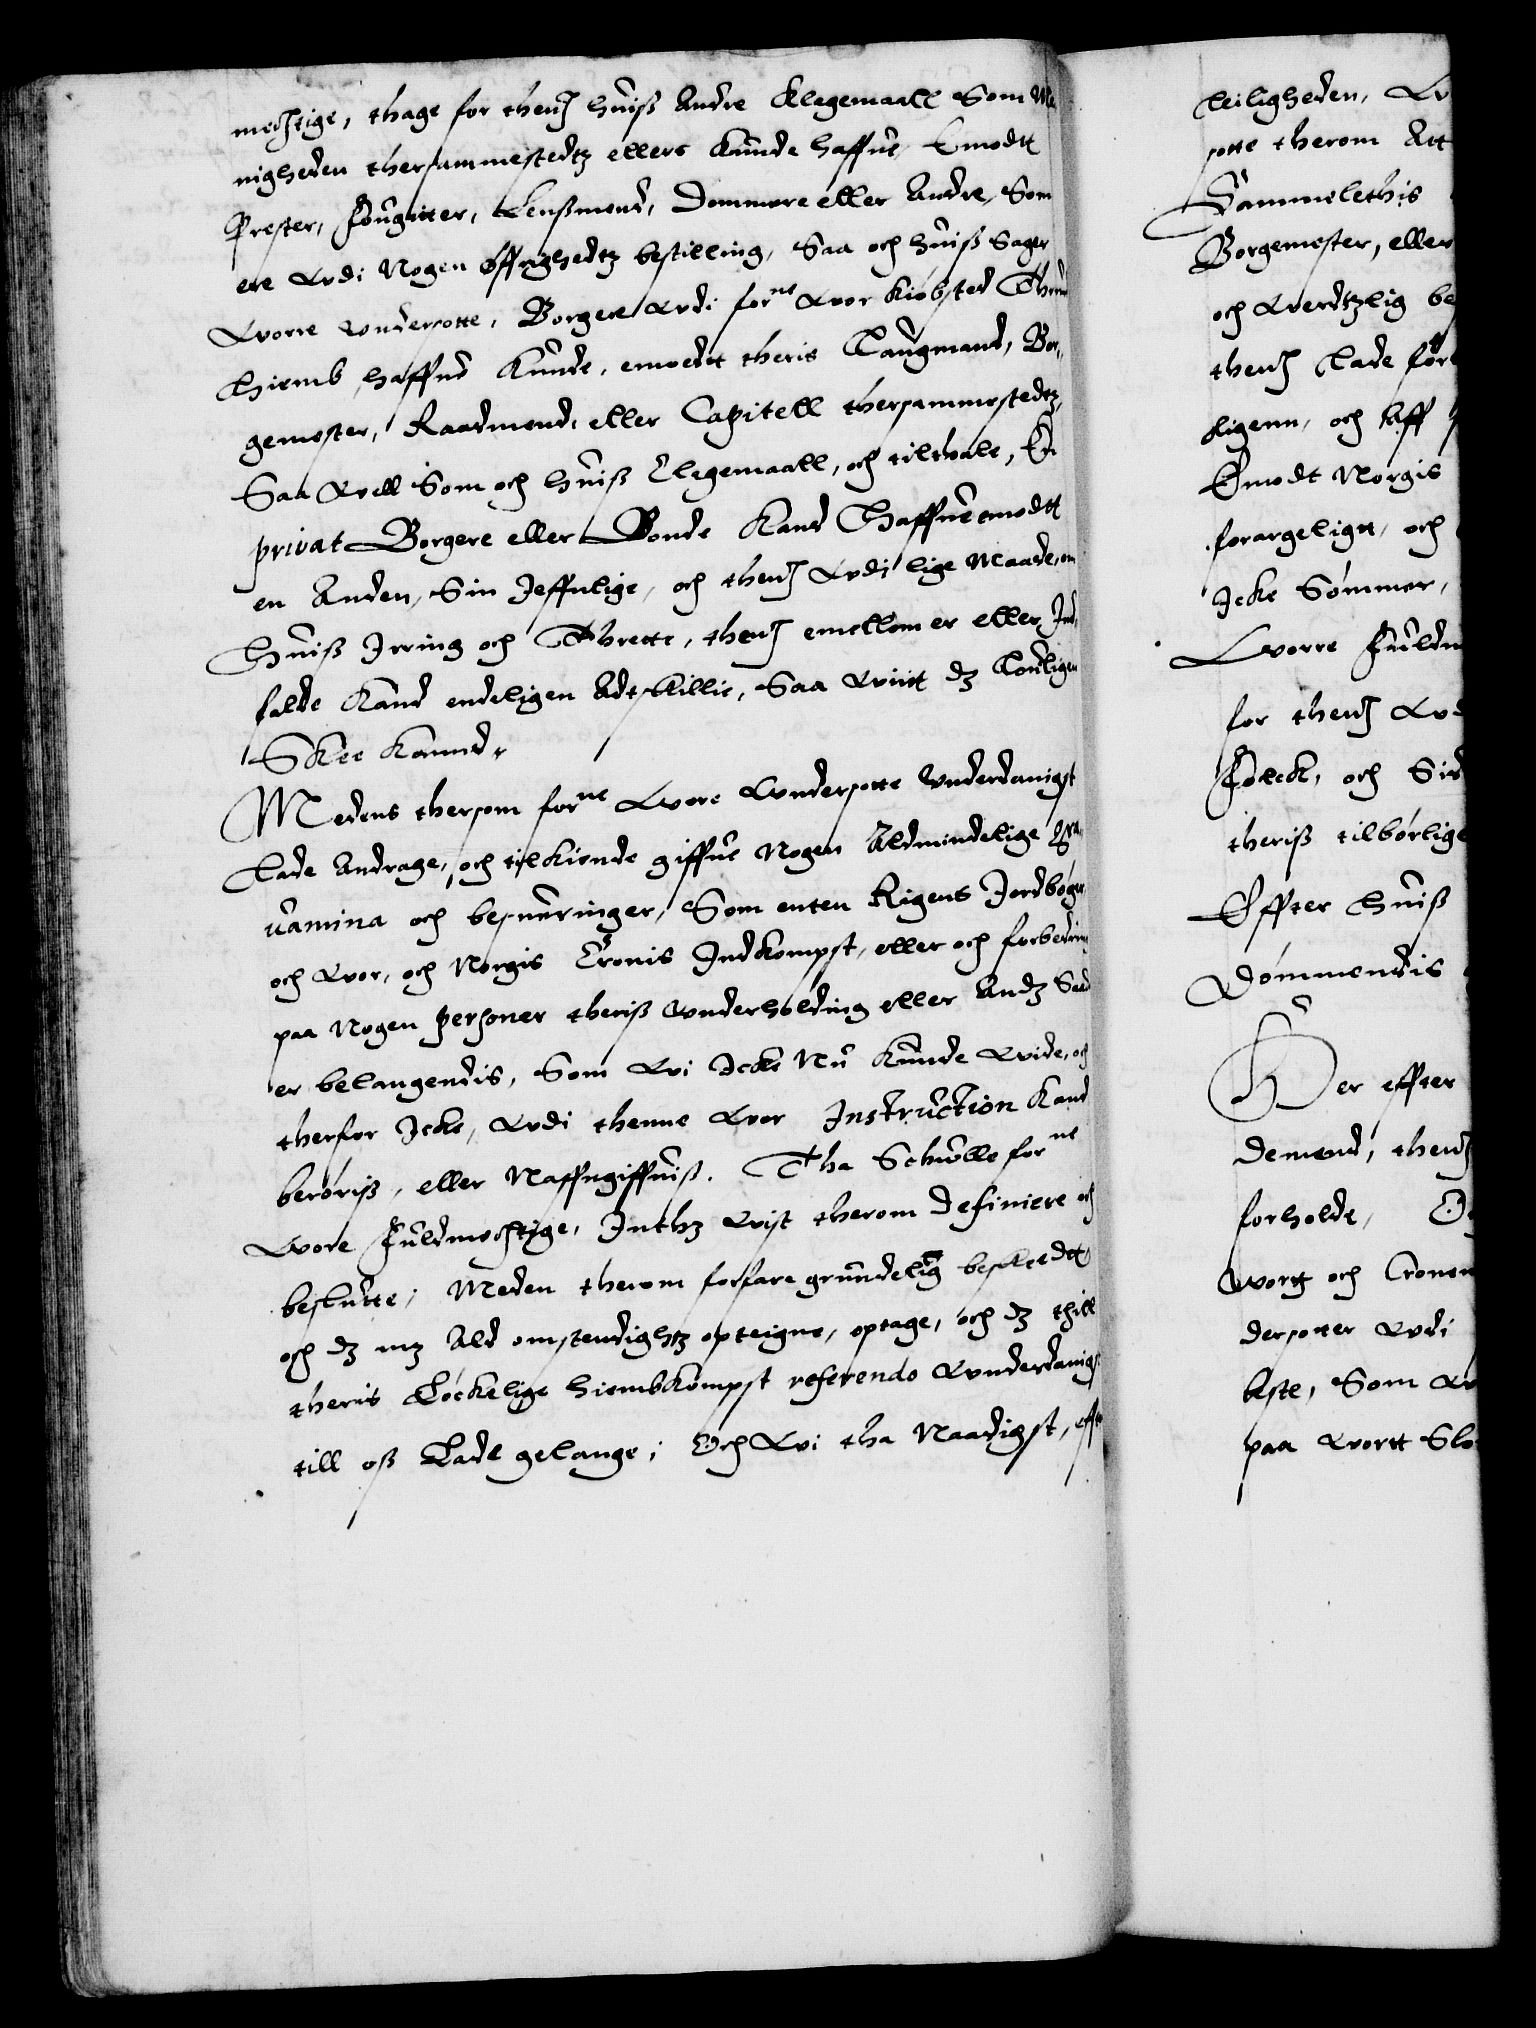 mechtige, thage for thend huiß Andre Klagemaall Som Me
nigheden thersammestedtz ellers Kunde haffue, Emodt
Prester, Fougitter, Lenßmend, Dommere eller Andre, Som
ere Vdi Nogen øffrighedtz bestilling, Saa och huiß Sager
Vorre Vndersotte, Borgere Vdi forne Vor Kiøbsted Thrund
hiemb haffue Kunde, emoedt theris Laugmand, Bor,
gemester, Raadmend, eller Capitell thersammestedtz,
Saa Vell Som och huiß Clagemaall, och tilthale, En
privat Borgere eller Bonde Kand Haffue emodtt
en Anden, Sin Jeffnlige, och thend Vdi lige Maade, om
Huiß Jrring och Thrette, thend emellom er eller Ind,
falde Kand endeligen Adtskillie, Saa Viitt dz Louligen
Skee Kannd,
Medens thersom forne Vore Vndersotte Vnderdanigst
Lade Andrage, och tilkiende giffue Nogen Aldmindelige Gra,
uamina och besueringer, Som enten Rigens Jordbøger
och Vor, och Norgis Cronis Indkompst, eller och forbedring
paa Nogen Personer theriß Vnderholding eller Andz Saad
er belangendis, Som Vi Icke Nu Kunde Vide, och
therfor Icke, Vdi thenne Vor Instruction Kand
berøriß, eller Naffngiffuiß. Tha Schulle forne
Vore Fuldmechtige, Inthz Vist therom definiere och
beslutte, Meden therom forfare grundelig beskeedtt
och dz mz Ald omstendighz opteigne, optage, och dz thill
theris Løckelige hiembkompst referendo Vnderdanigst
till oß Lade gelange; Och Vi tha Naadigst, effter
leiligheden,
sotte therom Att
Sammelethis
Borgemester, eller
och Verdtzlig be
thend Lade for
kigenn, och Aff
Emodt Norgis
forargeligtt, och
Icke Sømmer,
Vorre Fuldm
for thend Vd
Folck, och Sid
theriß tilbørlige
Effter huiß
Dømmendis
Der effter
demend, thend
forholde,
Wortt och Cronen
dersotter Vdi
beste, Som
paa Vortt Slo